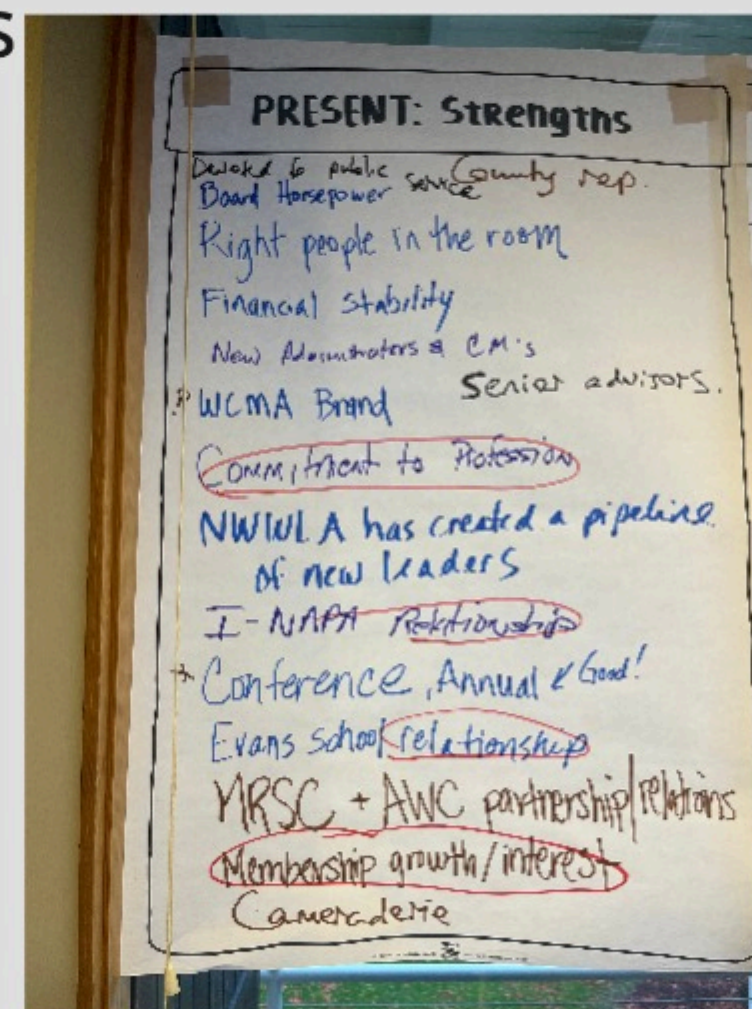 S
PRESENT: Strengths
Devoted to public service
County rep.
Board Horsepower
Right people in the room
Financial Stability
New Administrators & CM's
Senior advisors.
WCMA Brand
Commitment to Profession
NWWLA has created a pipeline
of new leaders
I-NAPA Relationship
Conference, Annual & Good!
Evans School relationship
MRSC + AWC partnership/relations
Membership growth/interest
Cameraderie